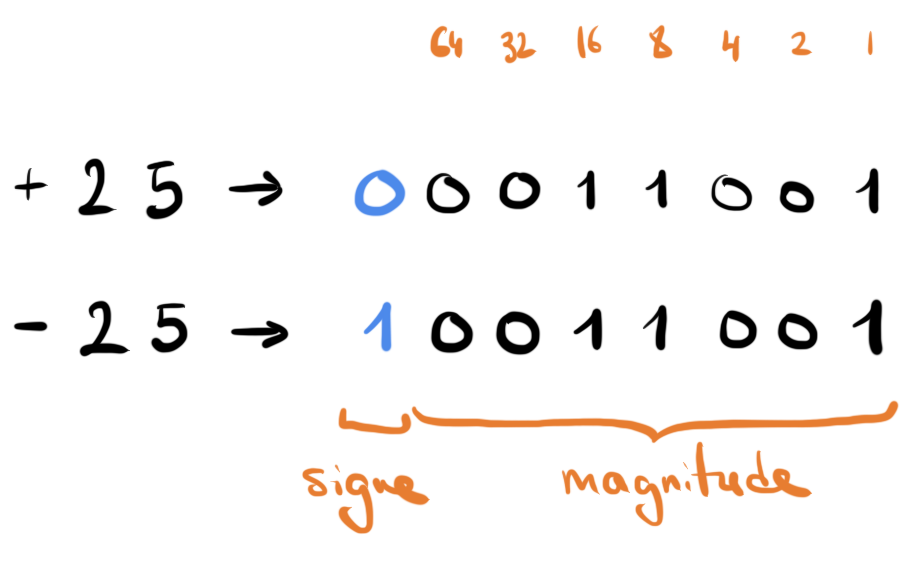 64 32 16 8 4 2 1
+ 2 5 → 0 0 0 1 1 0 0 1
- 2 5 → 1 0 0 1 1 0 0 1
signe magnitude